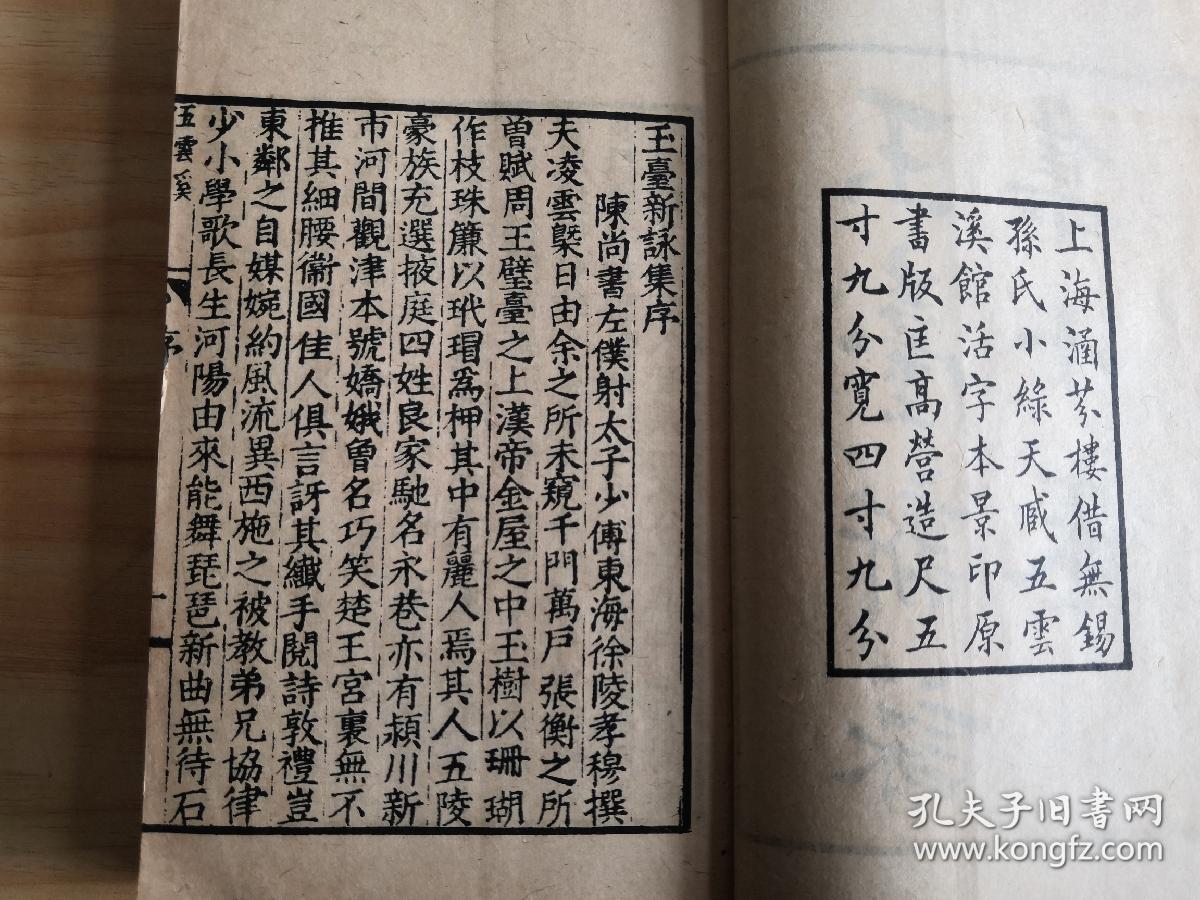 上海涵芬樓借無錫
孫氏小綠天臧五雲
溪館活字本景印原
書版匡高營造尺五
寸九分寬四寸九分
玉臺新詠集序
陳尚書左僕射太子少傅東海徐陵孝穆撰
夫凌雲槩日由余之所未窺千門萬戶張衡之所
曾賦周王璧臺之上漢帝金屋之中玉樹以珊瑚
作枝珠簾以玳瑁爲柙其中有麗人焉其人五陵
豪族充選掖庭四姓良家馳名永巷亦有潁川新
市河間觀津本號嬌娥曾名巧笑楚王宮裏無不
推其細腰衞國佳人俱言訝其纖手閱詩敦禮豈
東鄰之自媒婉約風流異西施之被教弟兄協律
少小學歌長生河陽由來能舞琵琶新曲無待石
五雲溪
序
一
孔夫子旧书网
www.kongfz.com